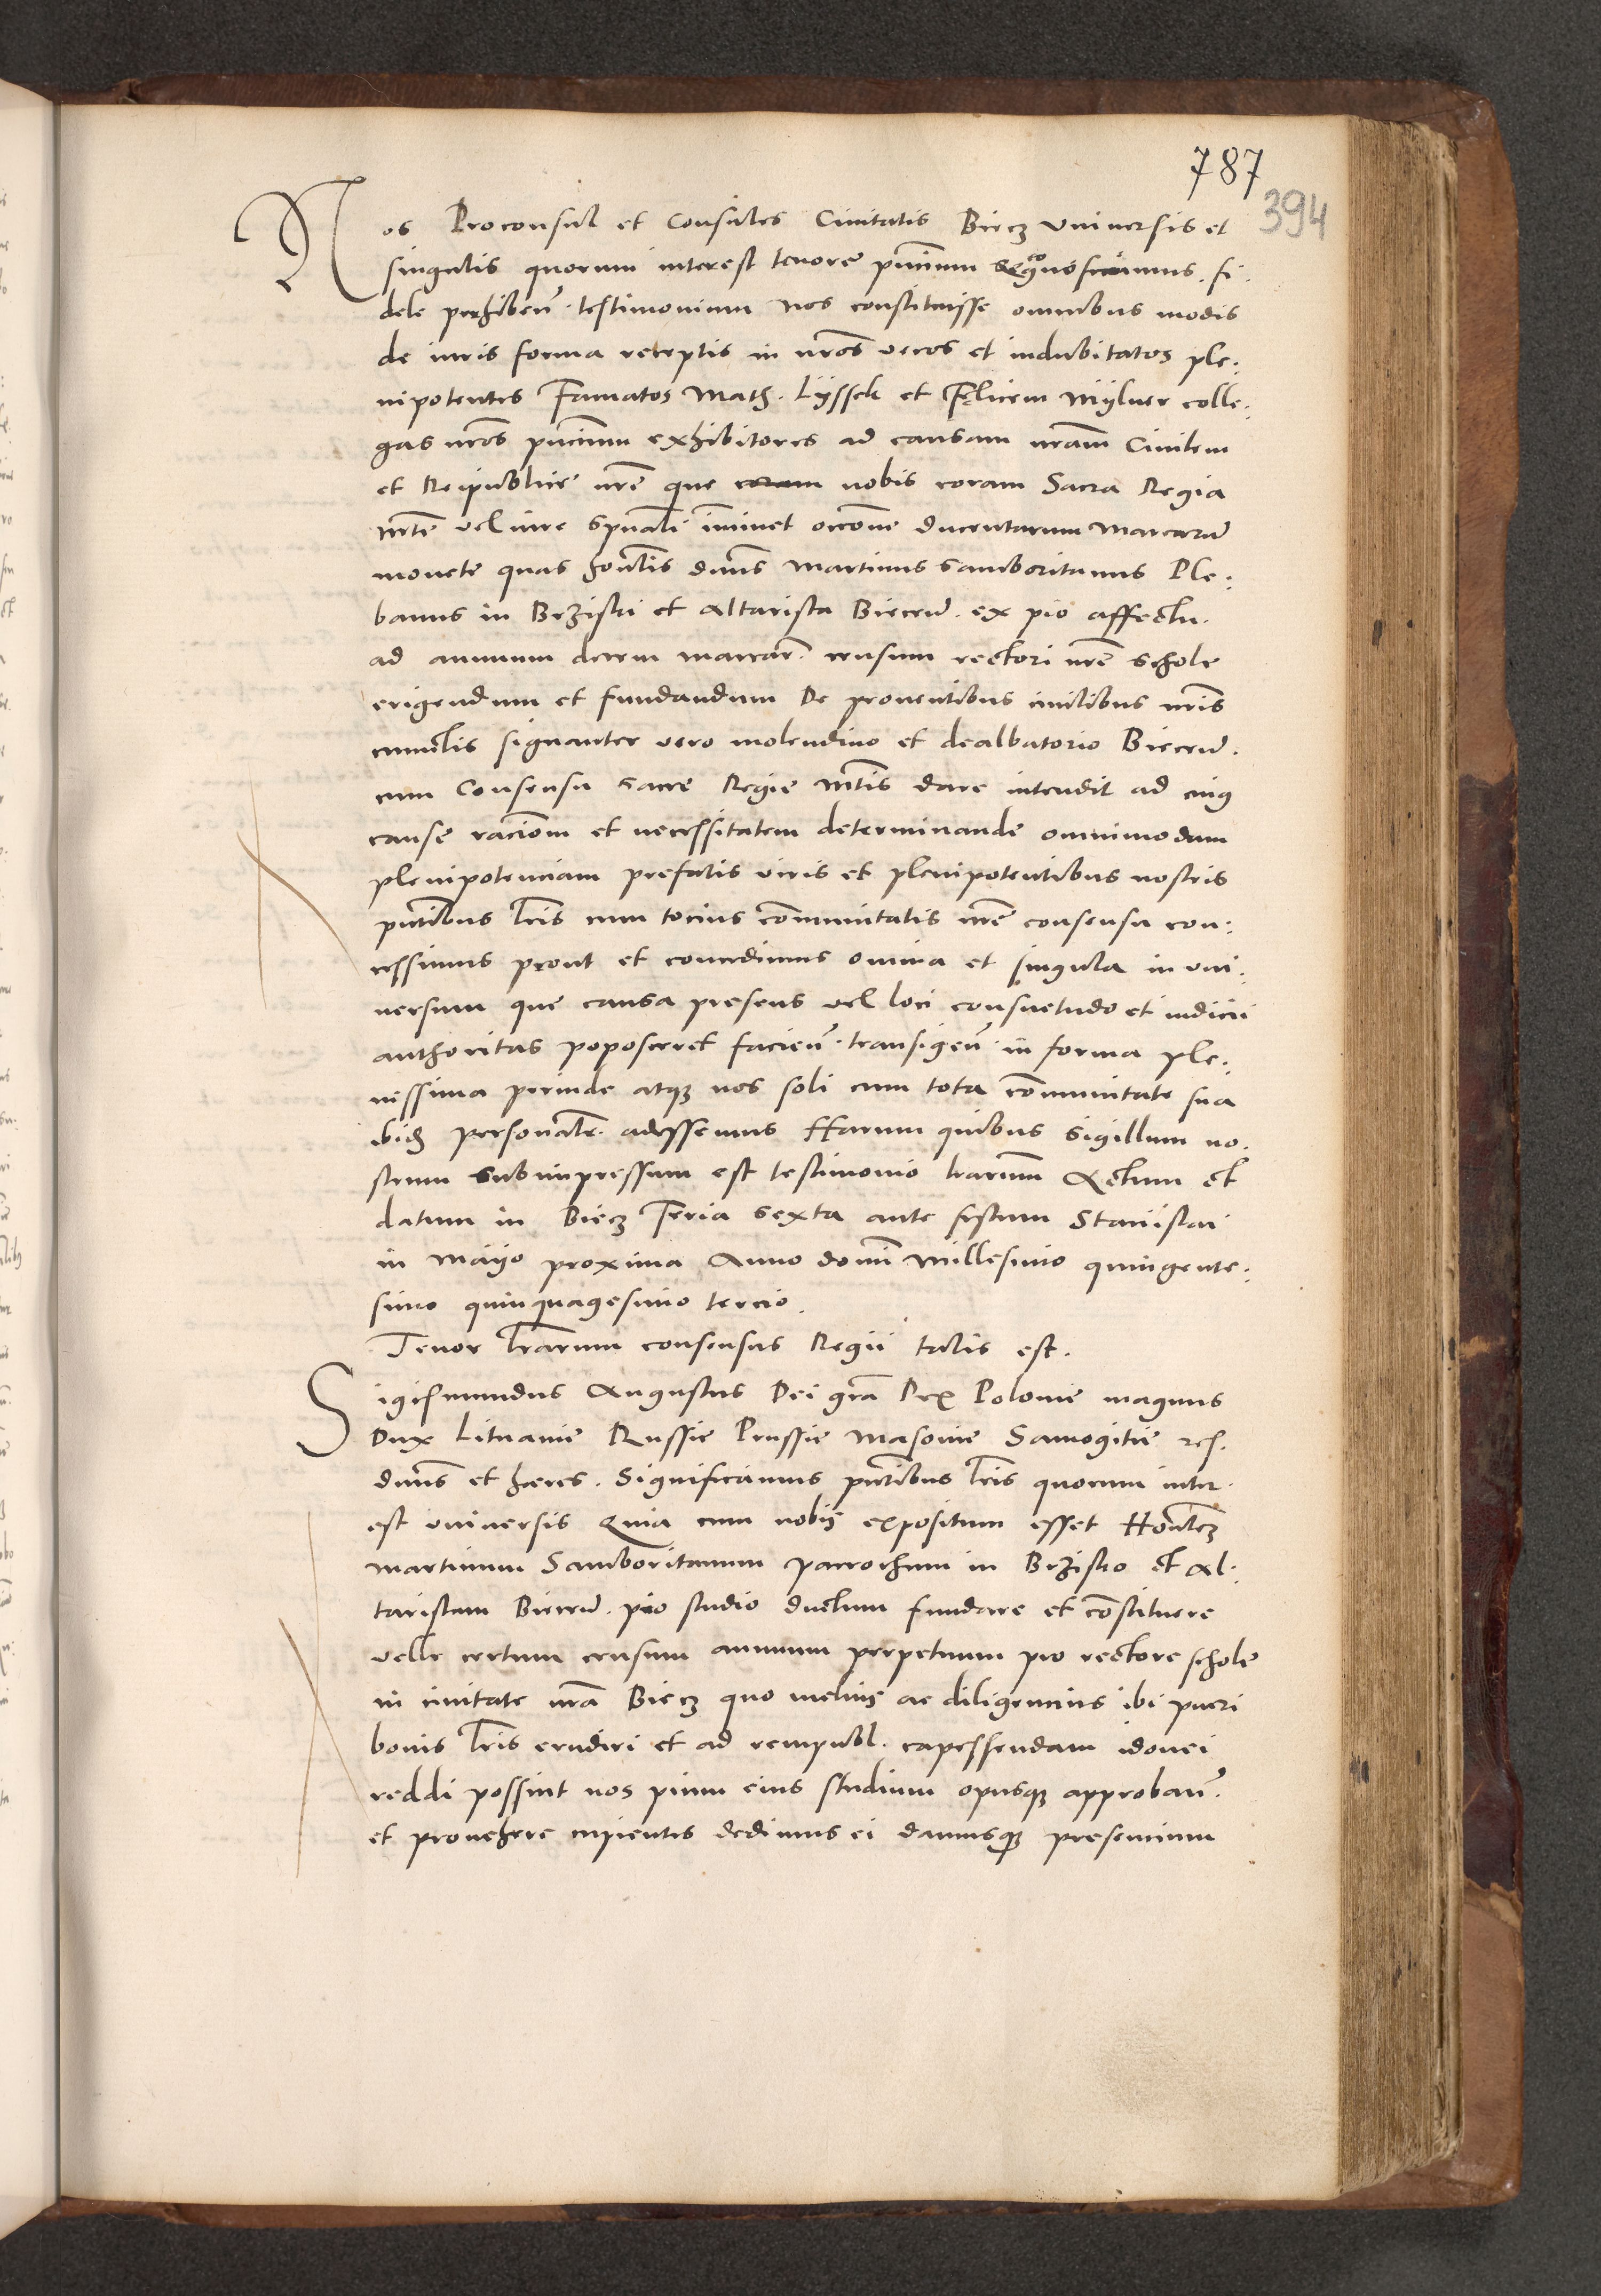 787
394
Nos Proconsul et Consules Civitatis Biecz Universis et
singulis quorum interest tenore pñcium recognoscimus . fi .
dele perhibeñ . testimonium nos constituisse omnibus modis
de iuris forma receptis in nr̃os veros et indubitatos ple :
nipotentes Famatos Math . Lyssek et Felicem Mylner colle :
gas nr̃os pñcium exhibitores ad causam nr̃am Civilem
et Reipublice nr̃e que coram nobis coram Sacra Regia
Mte vel iure spũali iminet occone ducentarum Marcarũ
monete quas honlis dñus Martinus Samboritanus Ple :
banus in Brziski et Altarista Biecen̄ . ex pio affectu .
ad annuum decem marcar̃ . censum rectori nr̃e schole
erigendum et fundandum De proventibus civilibus nr̃is
cunctis signanter vero molendino et dealbatorio Biecen̄ .
cum Consensu Sacre Regie Mtis dare intendit ad cuius
cause racionẽ et necessitatem determinande omnimodam
plenipotenciam prefatis viris et plenipotentibus nostris
pñtibus lr̃is cum tocius cõmunitatis nr̃e consensu con :
cessimus prout et concedimus omnia et singula in uni :
versum que causa presens vel loci consuetudo et iudicii
authoritas poposceret facieñ . transigeñ . in forma ple :
nissima perinde atque nos soli cum tota cõmunitate sua
ibidẽ personalr̃ . adessemus Harum quibus sigillum no :
strum subimpressum est testimonio lr̃arum Actum et
datum in Biecz Feria sexta ante festum Stanislai
in Mayo proxima Anno domĩ Millesimo quingente :
simo quinquagesimo tercio .
Tenor lr̃arum consensus Regii talis est .
Sigismundus Augustus Dei gr̃a Rex Polonie magnus
Dux Lituanie Russie Prussie Masovie Samogitie zc .
dñus et heres . Significamus pñtibus lr̃is quorum inter .
est universis Quia cum nobis expositum esset Honlẽ
Martinum Samboritanum parrochum in Brzisko et Al :
taristam Biecen̄ . pio studio ductum fundare et cõstituere
velle certum censum annuum perpetuum pro rectore schole
in civitate nr̃a Biecz quo melius ac diligencius ibi pueri
bonis lr̃is erudiri et ad rempubl . capessendam idonei
reddi possint nos pium eius studium opusque approbañ .
et provehere cupientes dedimus ei damusque presencium